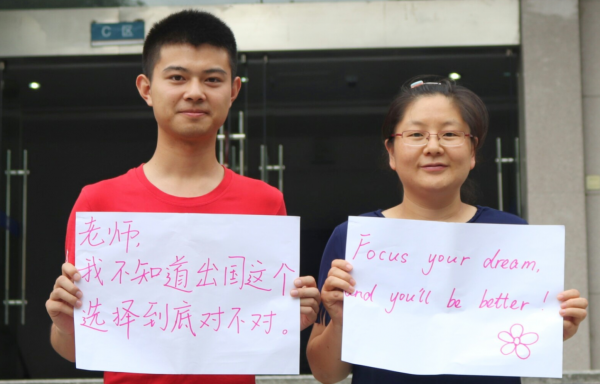 C 区
老师,
我不知道出国这个
选择到底对不对。
Focus your dream,
and you'll be better!